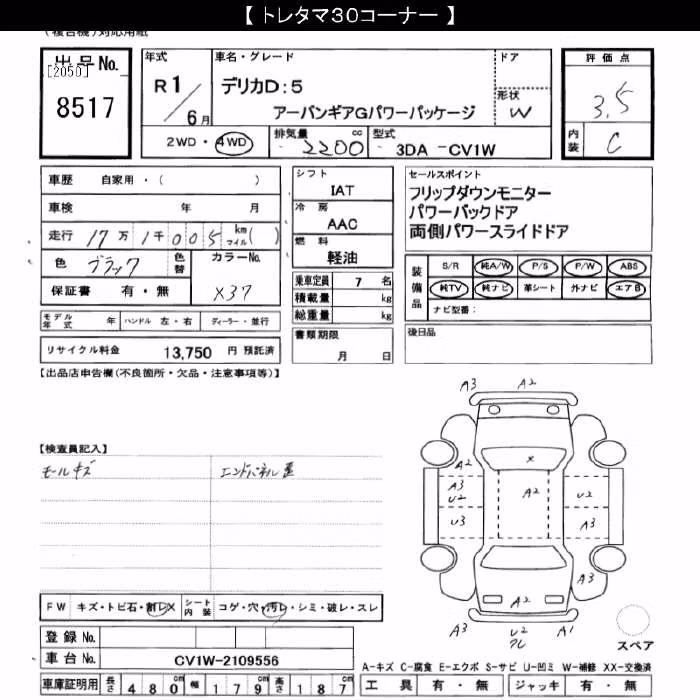 【 トレタマ30コーナー 】
(複合機)対応用紙
出品No.
[2050]
8517
年式
R 1 / 6 月
車名・グレード
デリカD:5
アーバンギアGパワーパッケージ
ドア
形状
W
2WD・4WD
排気量 2200 cc
型式 3DA -CV1W
評価点
3.5
内装 C
車歴 自家用・( )
車検 年 月
走行 17万 1千 005 km マイル( )
色 ブラック 色替 カラーNo.
X37
保証書 有・無
モデル年式 年 ハンドル 左・右 ディーラー・並行
リサイクル料金 13,750 円 預託済
シフト
IAT
冷房
AAC
燃料
軽油
乗車定員 7 名
積載量 kg
総重量 kg
書類期限
月 日
セールスポイント
フリップダウンモニター
パワーバックドア
両側パワースライドドア
装備品
S/R 純A/W P/S P/W ABS
純TV 純ナビ 革シート 外ナビ エアB
ナビ型番:
後日品
【出品店申告欄(不良箇所・欠品・注意事項等)】
【検査員記入】
モールキズ
エンドパネル歪
A3 A2
A2 X
A3 U2 A2 U2
U3 A3
A3
A2
A3 U2 A1
スペア
FW キズ・トビ石・割レX シート内装 コゲ・穴・汚レ・シミ・破レ・スレ
登録No.
車台No. CV1W-2109556
車庫証明用 長さ 480 cm 幅 179 cm 高さ 187 cm
A-キズ C-腐食 E-エクボ S-サビ U-凹ミ W-補修 XX-交換済
工具 有・無 ジャッキ 有・無